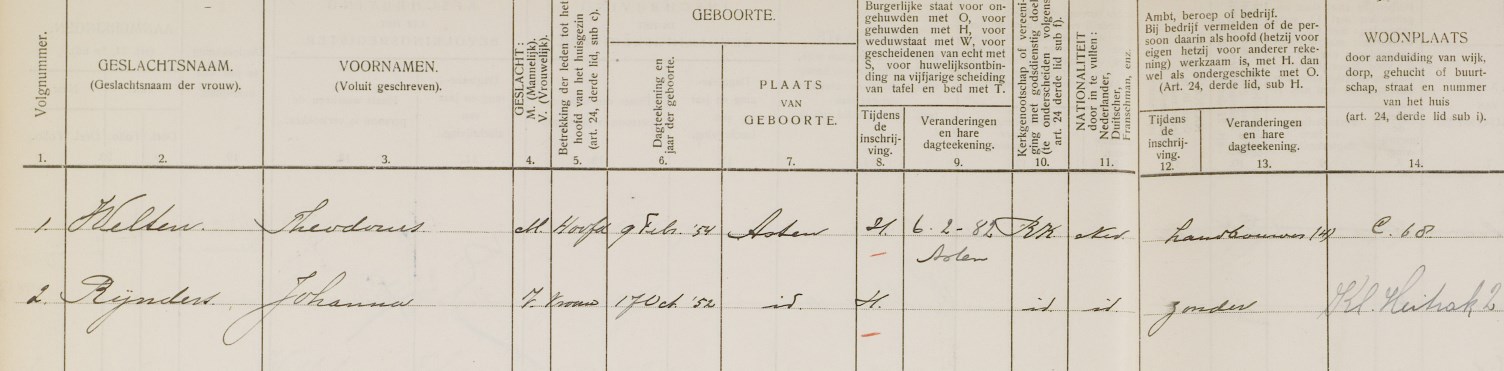 Volgnummer.
GESLACHTSNAAM.
(Geslachtsnaam der vrouw).
VOORNAMEN.
(Voluit geschreven).
GESLACHT:
M. (Mannelijk).
V. (Vrouwelijk).
Betrekking der leden tot het
hoofd van het huisgezin
(art. 24, derde lid, sub c).
GEBOORTE.
Dagteekening en
jaar der geboorte.
PLAATS
VAN
GEBOORTE.
Burgerlijke staat voor on-
gehuwden met O, voor
gehuwden met H, voor
weduwstaat met W, voor
gescheidenen van echt met
S, voor huwelijksontbin-
ding na vijfjarige scheiding
van tafel en bed met T.
Tijdens
de
inschrij-
ving.
Veranderingen
en hare
dagteekening.
Kerkgenootschap of vereeni-
ging met godsdienstig doel
(te onderscheiden volgens
art. 24 derde lid sub f).
NATIONALITEIT
door in te vullen:
Nederlander,
Duitscher,
Franschman, enz.
Ambt, beroep of bedrijf.
Bij bedrijf vermelden of de per-
soon daarin als hoofd (hetzij voor
eigen hetzij voor anderer reke-
ning) werkzaam is, met H. dan
wel als ondergeschikte met O.
(Art. 24, derde lid, sub H.
Tijdens
de
inschrij-
ving.
Veranderingen
en hare
dagteekening.
WOONPLAATS
door aanduiding van wijk,
dorp, gehucht of buurt-
schap, straat en nummer
van het huis
(art. 24, derde lid sub i).
1. 2. 3. 4. 5. 6. 7. 8. 9. 10. 11. 12. 13. 14.
1. Welten. Theodorus M. Hoofd 9 Febr. '54 Asten H. 6-2-82 R.K. Ned. landbouwer (H) C. 68.
Asten
2. Rijnders. Johanna V. Vrouw 17 Oct. '52 id. H. id. id. zonder Kl. Heitrak 2